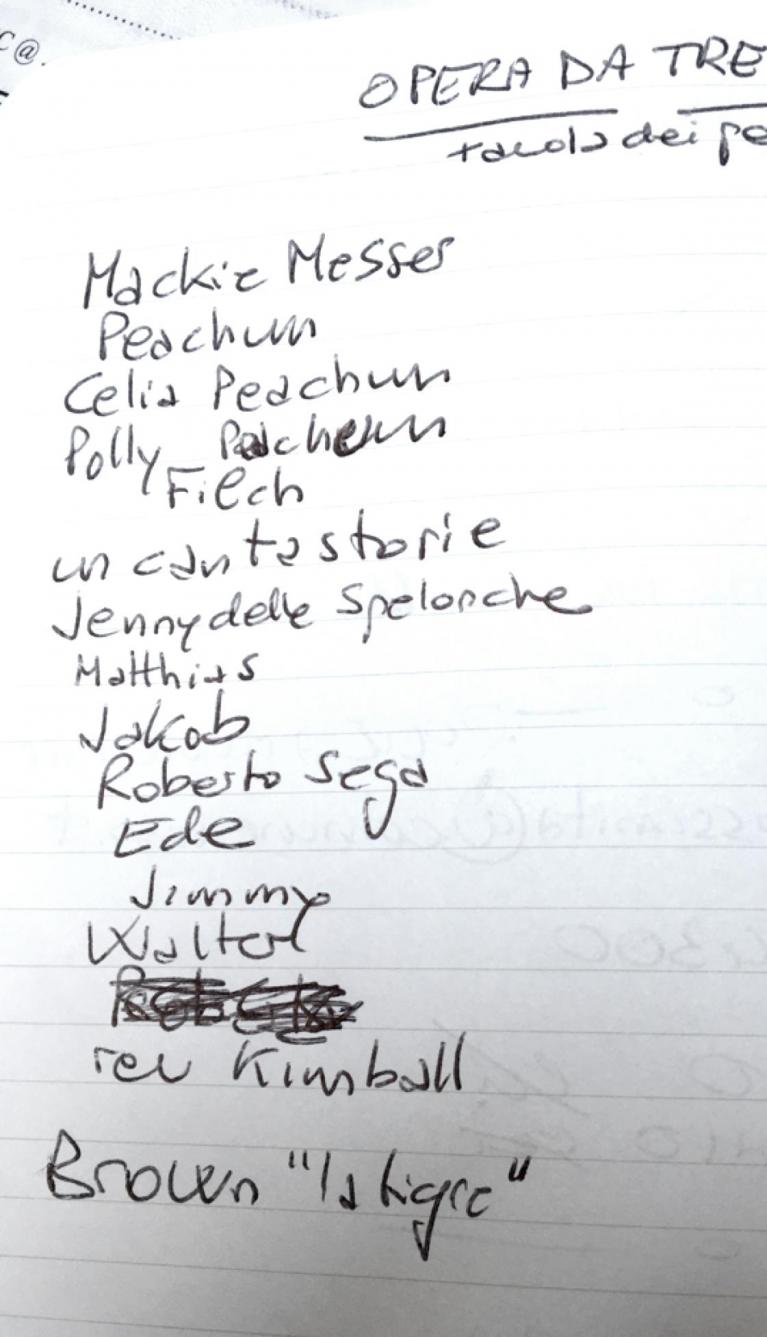 c@.
OPERA DA TRE
tavola dei pe
Mackie Messer
Peachum
Celia Peachum
Polly Peachum
Filch
un cantastorie
Jenny delle Spelonche
Matthias
Jakob
Roberto Sega
Ede
Jimmy
Walter
rev Kimball
Brown "la tigre"